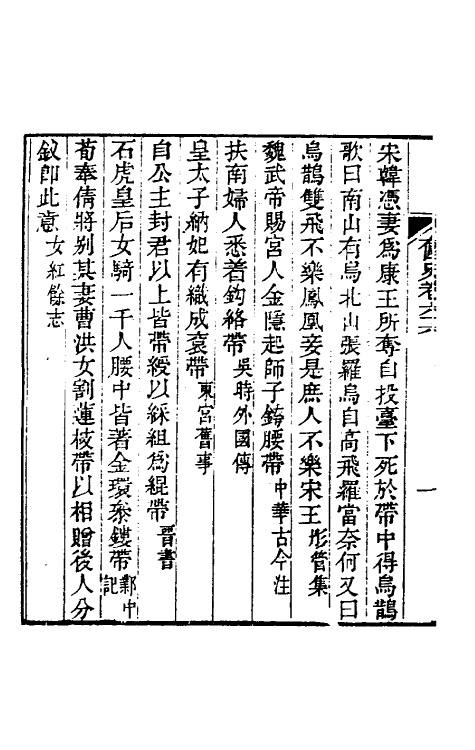 奩史卷六六
一
宋韓憑妻爲康王所奪自投臺下死於帶中得烏鵲
歌曰南山有烏北山張羅烏自高飛羅當奈何又曰
烏鵲雙飛不樂鳳凰妾是庶人不樂宋王 彤管集
魏武帝賜宮人金隱起師子銙腰帶 中華古今注
扶南婦人悉着鈎絡帶 吳時外國傳
皇太子納妃有織成袞帶 東宮舊事
自公主封君以上皆帶綬以綵組爲緄帶 晋書
石虎皇后女騎一千人腰中皆著金環叅鏤帶 鄴中記
荀奉倩將别其妻曹洪女割蓮枝帶以相贈後人分
釵即此意 女紅餘志